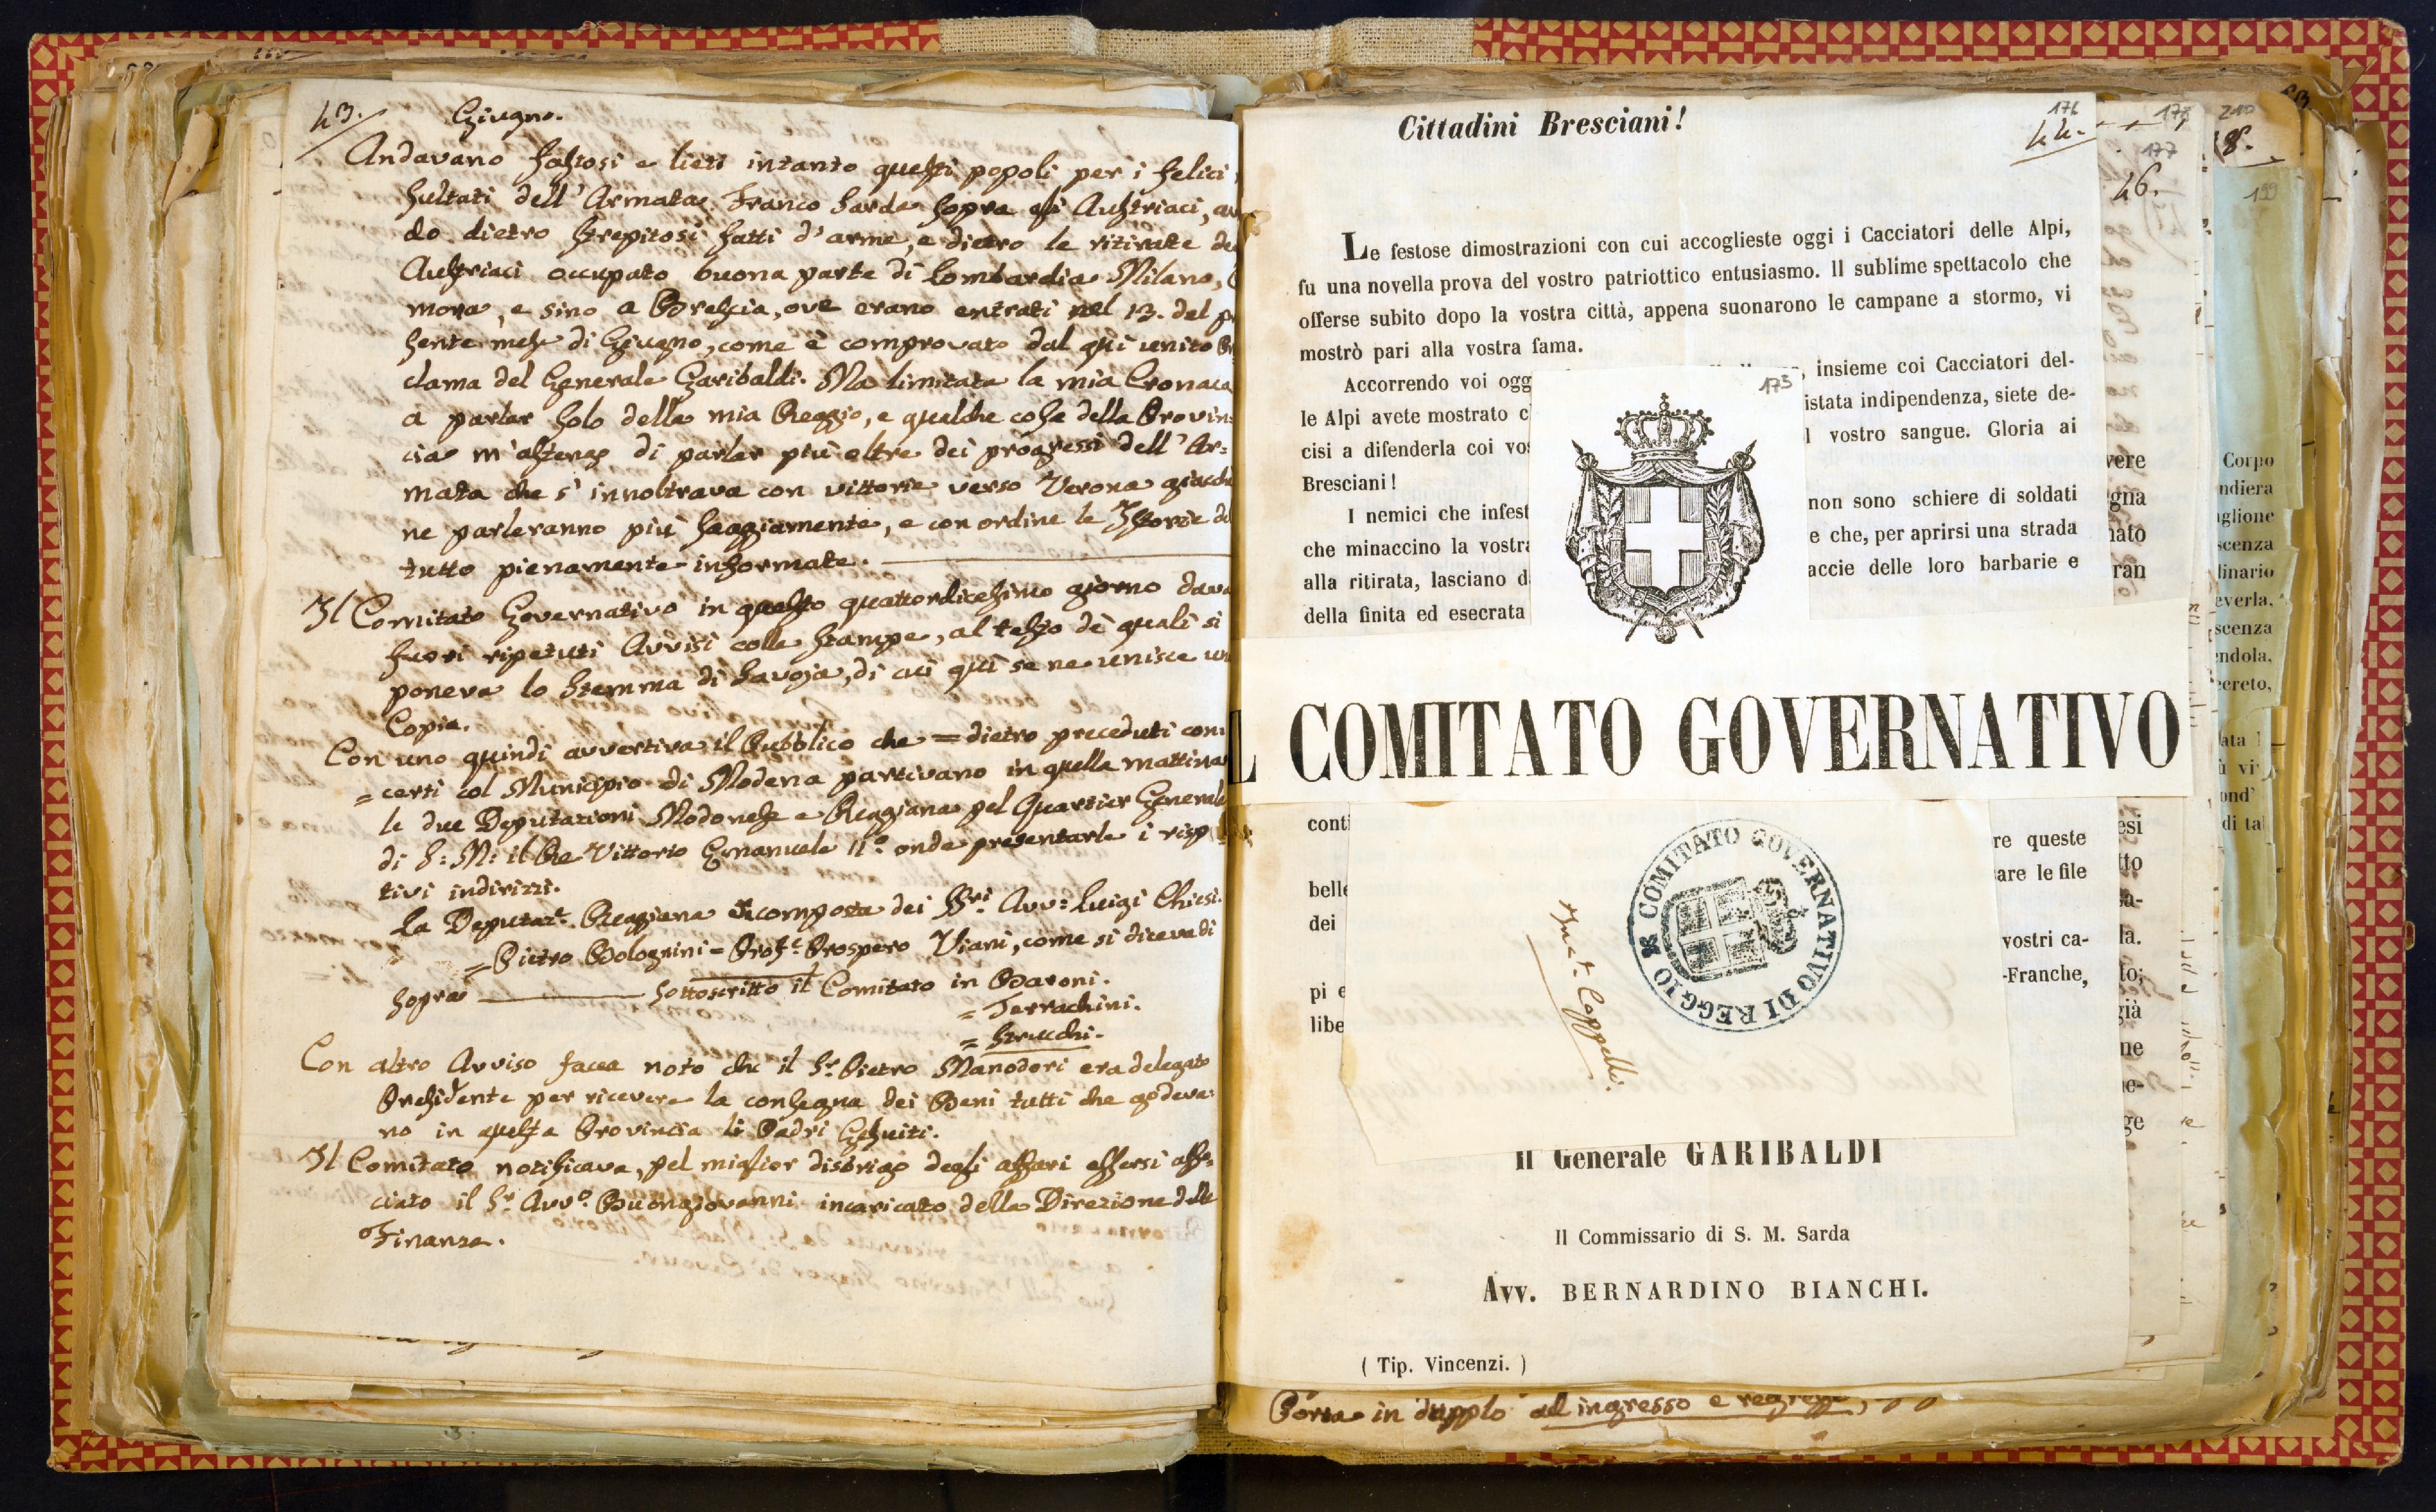 43.
Giugno.
Andavano fastosi e lieti intanto questi popoli per i felici
sultati dell' Armata Franco Sarda sopra gli Austriaci,
do dietro strepitosi fatti d'arme, e dietro le ritirate
Austriaci occupato buona parte di Lombardia Milano,
mona, e sino a Brescia, ove erano entrati nel 13. del
sente mese di Giugno, come è comprovato dal qui unito
clama del Generale Garibaldi. Ma limitata la mia Cronaca
a parlar solo della mia Reggio, e qualche cosa della Provin=
cia m'astengo di parlar più oltre dei progressi dell' Ar=
mata che s' innoltrava con vittorie verso Verona giacchè
ne parleranno più saggiamente, e con ordine le Istorie
tutto pienamente informate.
Il Comitato Governativo in questo quattordicesimo giorno dava
fuori ripetuti Avvisi colle stampe, al testo dè quali si
poneva lo Stemma di Savoja, di cui qui se ne unisce
Copia.
Con uno quindi avvertiva il Pubblico che = dietro preceduti con
= certi col Municipio di Modena partivano in quella mattina
le due Deputazioni Modonese e Reggiana pel Quartier Generale
di S: M: il Re Vittorio Emanuele II.º onde presentarle i risp
tivi indirizzi.
La Deputaz.e Reggiana è composta dei Sri. Avv: Luigi Chiesi.
= Pietro Bolognini = Prof.e Prospero Viani, come si diceva di
sopra Sottoscritto il Comitato in Baroni.
= Terrachini.
= Strucchi.
Con altro Avviso facea noto che il Sr. Pietro Manodori era delegato
Presidente per ricevere la consegna dei Beni tutti che godeva=
no in questa Provincia li Padri Gesuiti.
Il Comitato notificava, pel miglior disbrigo degli affari essersi asso=
ciato il Sr. Avvº. Buongiovanni incaricato della Direzione delle
Finanze.
Cittadini Bresciani!
176
44.
Le festose dimostrazioni con cui accoglieste oggi i Cacciatori delle Alpi,
fu una novella prova del vostro patriottico entusiasmo. Il sublime spettacolo che
offerse subito dopo la vostra città, appena suonarono le campane a stormo, vi
mostrò pari alla vostra fama.
Accorrendo voi ogg , insieme coi Cacciatori del-
le Alpi avete mostrato c istata indipendenza, siete de-
cisi a difenderla coi vos l vostro sangue. Gloria ai
Bresciani!
I nemici che infest non sono schiere di soldati
che minaccino la vostra e che, per aprirsi una strada
alla ritirata, lasciano d accie delle loro barbarie e
della finita ed esecrata
175
L COMITATO GOVERNATIVO
conti re queste
belle are le file
dei
vostri ca-
pi e -Franche,
libe
COMITATO GOVERNATIVO DI REGGIO
Cappelli.
Il Generale GARIBALDI
Il Commissario di S. M. Sarda
Avv. BERNARDINO BIANCHI.
( Tip. Vincenzi. )
Porta in dupplo ad ingresso e regresso
178
177
46.
vere
gna
nato
ran
esi
tto
a-
la.
to;
già
ne
ne-
ge
210
8.
199
Corpo
ndiera
aglione
scenza
dinario
everla.
scenza
endola,
ecreto,
ata
ù vi
ond'
di tal